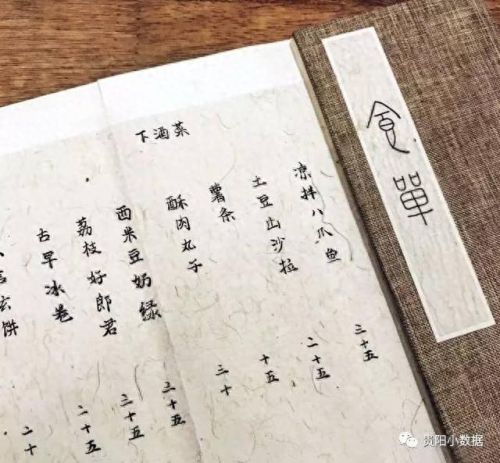 食單
下酒菜
凉拌八爪鱼 三十五
土豆出沙拉 二十五
薯条 十五
酥肉丸子 三十
西米豆奶绿 三十五
荔枝好郎君 二十五
古早冰卷 二十五
玄饼 二十
浏阳小数据